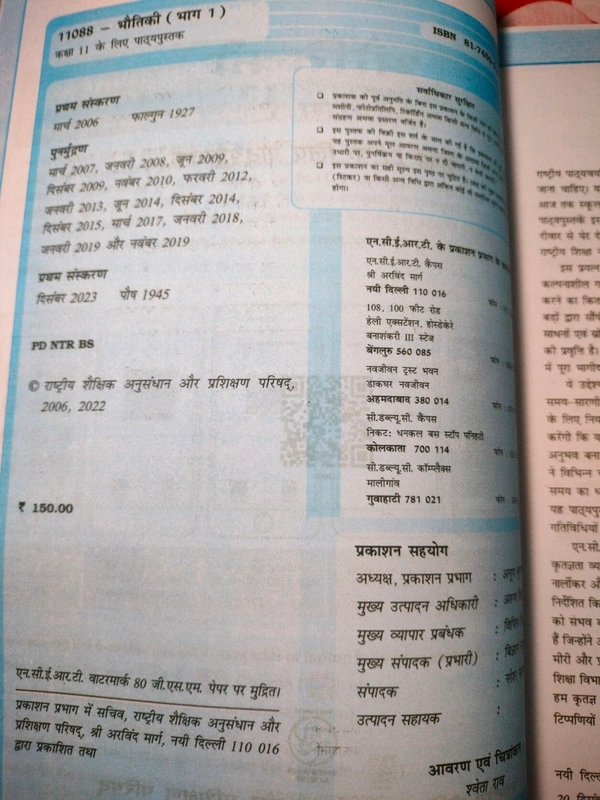 11088 – भौतिकी ( भाग 1 )
कक्षा 11 के लिए पाठ्यपुस्तक
ISBN 81-7450-
प्रथम संस्करण
मार्च 2006 फाल्गुन 1927
पुनर्मुद्रण
मार्च 2007, जनवरी 2008, जून 2009,
दिसंबर 2009, नवंबर 2010, फरवरी 2012,
जनवरी 2013, जून 2014, दिसंबर 2014,
दिसंबर 2015, मार्च 2017, जनवरी 2018,
जनवरी 2019 और नवंबर 2019
प्रथम संस्करण
दिसंबर 2023 पौष 1945
PD NTR BS
© राष्ट्रीय शैक्षिक अनुसंधान और प्रशिक्षण परिषद्,
2006, 2022
₹ 150.00
एन.सी.ई.आर.टी. वाटरमार्क 80 जी.एस.एम. पेपर पर मुद्रित।
प्रकाशन प्रभाग में सचिव, राष्ट्रीय शैक्षिक अनुसंधान और
प्रशिक्षण परिषद्, श्री अरविंद मार्ग, नयी दिल्ली 110 016
द्वारा प्रकाशित तथा
सर्वाधिकार सुरक्षित
प्रकाशक की पूर्व अनुमति के बिना इस प्रकाशन के किसी
मशीनी, फोटोप्रतिलिपि, रिकॉर्डिंग अथवा किसी अन्य विधि से
संग्रहण अथवा प्रसारण वर्जित है।
इस पुस्तक की बिक्री इस शर्त के साथ की गई है कि प्रकाशक
यह पुस्तक अपने मूल आवरण अथवा जिल्द के अलावा
उधारी पर, पुनर्विक्रय या किराए पर न दी जाएगी, न बेची
इस प्रकाशन का सही मूल्य इस पृष्ठ पर मुद्रित है।
(स्टिकर) या किसी अन्य विधि द्वारा अंकित कोई भी
होगा।
एन.सी.ई.आर.टी. के प्रकाशन प्रभाग के
एन.सी.ई.आर.टी. कैंपस
श्री अरविंद मार्ग
नयी दिल्ली 110 016
108, 100 फीट रोड
हेली एक्सटेंशन, होस्डेकेरे
बनाशंकरी III स्टेज
बेंगलुरु 560 085
नवजीवन ट्रस्ट भवन
डाकघर नवजीवन
अहमदाबाद 380 014
सी.डब्ल्यू.सी. कैंपस
निकट: धनकल बस स्टॉप पनिहटी
कोलकाता 700 114
सी.डब्ल्यू.सी. कॉम्प्लैक्स
मालीगांव
गुवाहाटी 781 021
प्रकाशन सहयोग
अध्यक्ष, प्रकाशन प्रभाग :
मुख्य उत्पादन अधिकारी :
मुख्य व्यापार प्रबंधक :
मुख्य संपादक (प्रभारी) :
संपादक :
उत्पादन सहायक :
आवरण एवं चित्रांकन
श्वेता राव
जाना चाहिए।
आज तक स्कूल
पाठ्यपुस्तकें
राष्ट्रीय शिक्षा
इस प्रयत्न
करने का
बड़ों द्वारा
की प्रवृत्ति है।
में पूरा
ये उद्देश्य
समय-सारणी
करेंगी कि
अनुभव
ने विभिन्न
समय का
एन.सी.
कृतज्ञता
को संभव
हैं जिन्होंने
शिक्षा
हम कृतज्ञ
टिप्पणियों
नयी दिल्ली